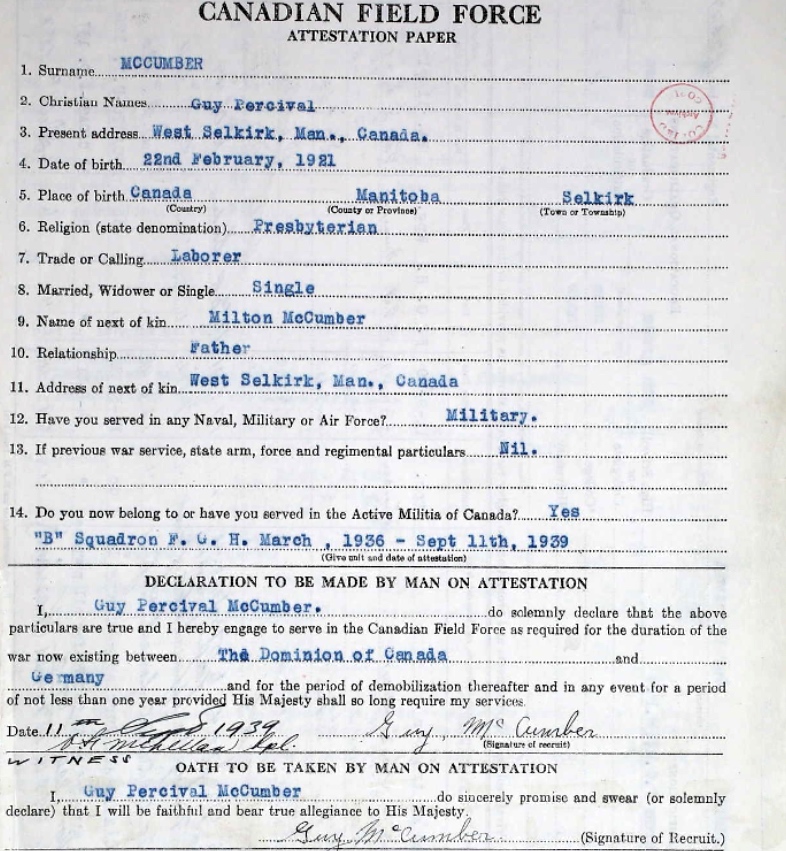 CANADIAN FIELD FORCE
ATTESTATION PAPER
1. Surname MCCUMBER
2. Christian Names Guy Percival
3. Present address West Selkirk, Man., Canada.
4. Date of birth 22nd February, 1921
5. Place of birth Canada Manitoba Selkirk
(Country) (County or Province) (Town or Township)
6. Religion (state denomination) Presbyterian
7. Trade or Calling Laborer
8. Married, Widower or Single Single
9. Name of next of kin Milton McCumber
10. Relationship Father
11. Address of next of kin West Selkirk, Man., Canada
12. Have you served in any Naval, Military or Air Force? Military.
13. If previous war service, state arm, force and regimental particulars Nil.
14. Do you now belong to or have you served in the Active Militia of Canada? Yes
"B" Squadron F. G. H. March , 1936 - Sept 11th, 1939
(Give unit and date of attestation)
DECLARATION TO BE MADE BY MAN ON ATTESTATION
I, Guy Percival McCumber. do solemnly declare that the above
particulars are true and I hereby engage to serve in the Canadian Field Force as required for the duration of the
war now existing between The Dominion of Canada and
Germany and for the period of demobilization thereafter and in any event for a period
of not less than one year provided His Majesty shall so long require my services.
Date 11th 1939 Guy McCumber
(Signature of recruit)
WITNESS
OATH TO BE TAKEN BY MAN ON ATTESTATION
I, Guy Percival McCumber do sincerely promise and swear (or solemnly
declare) that I will be faithful and bear true allegiance to His Majesty.
Guy McCumber (Signature of Recruit.)